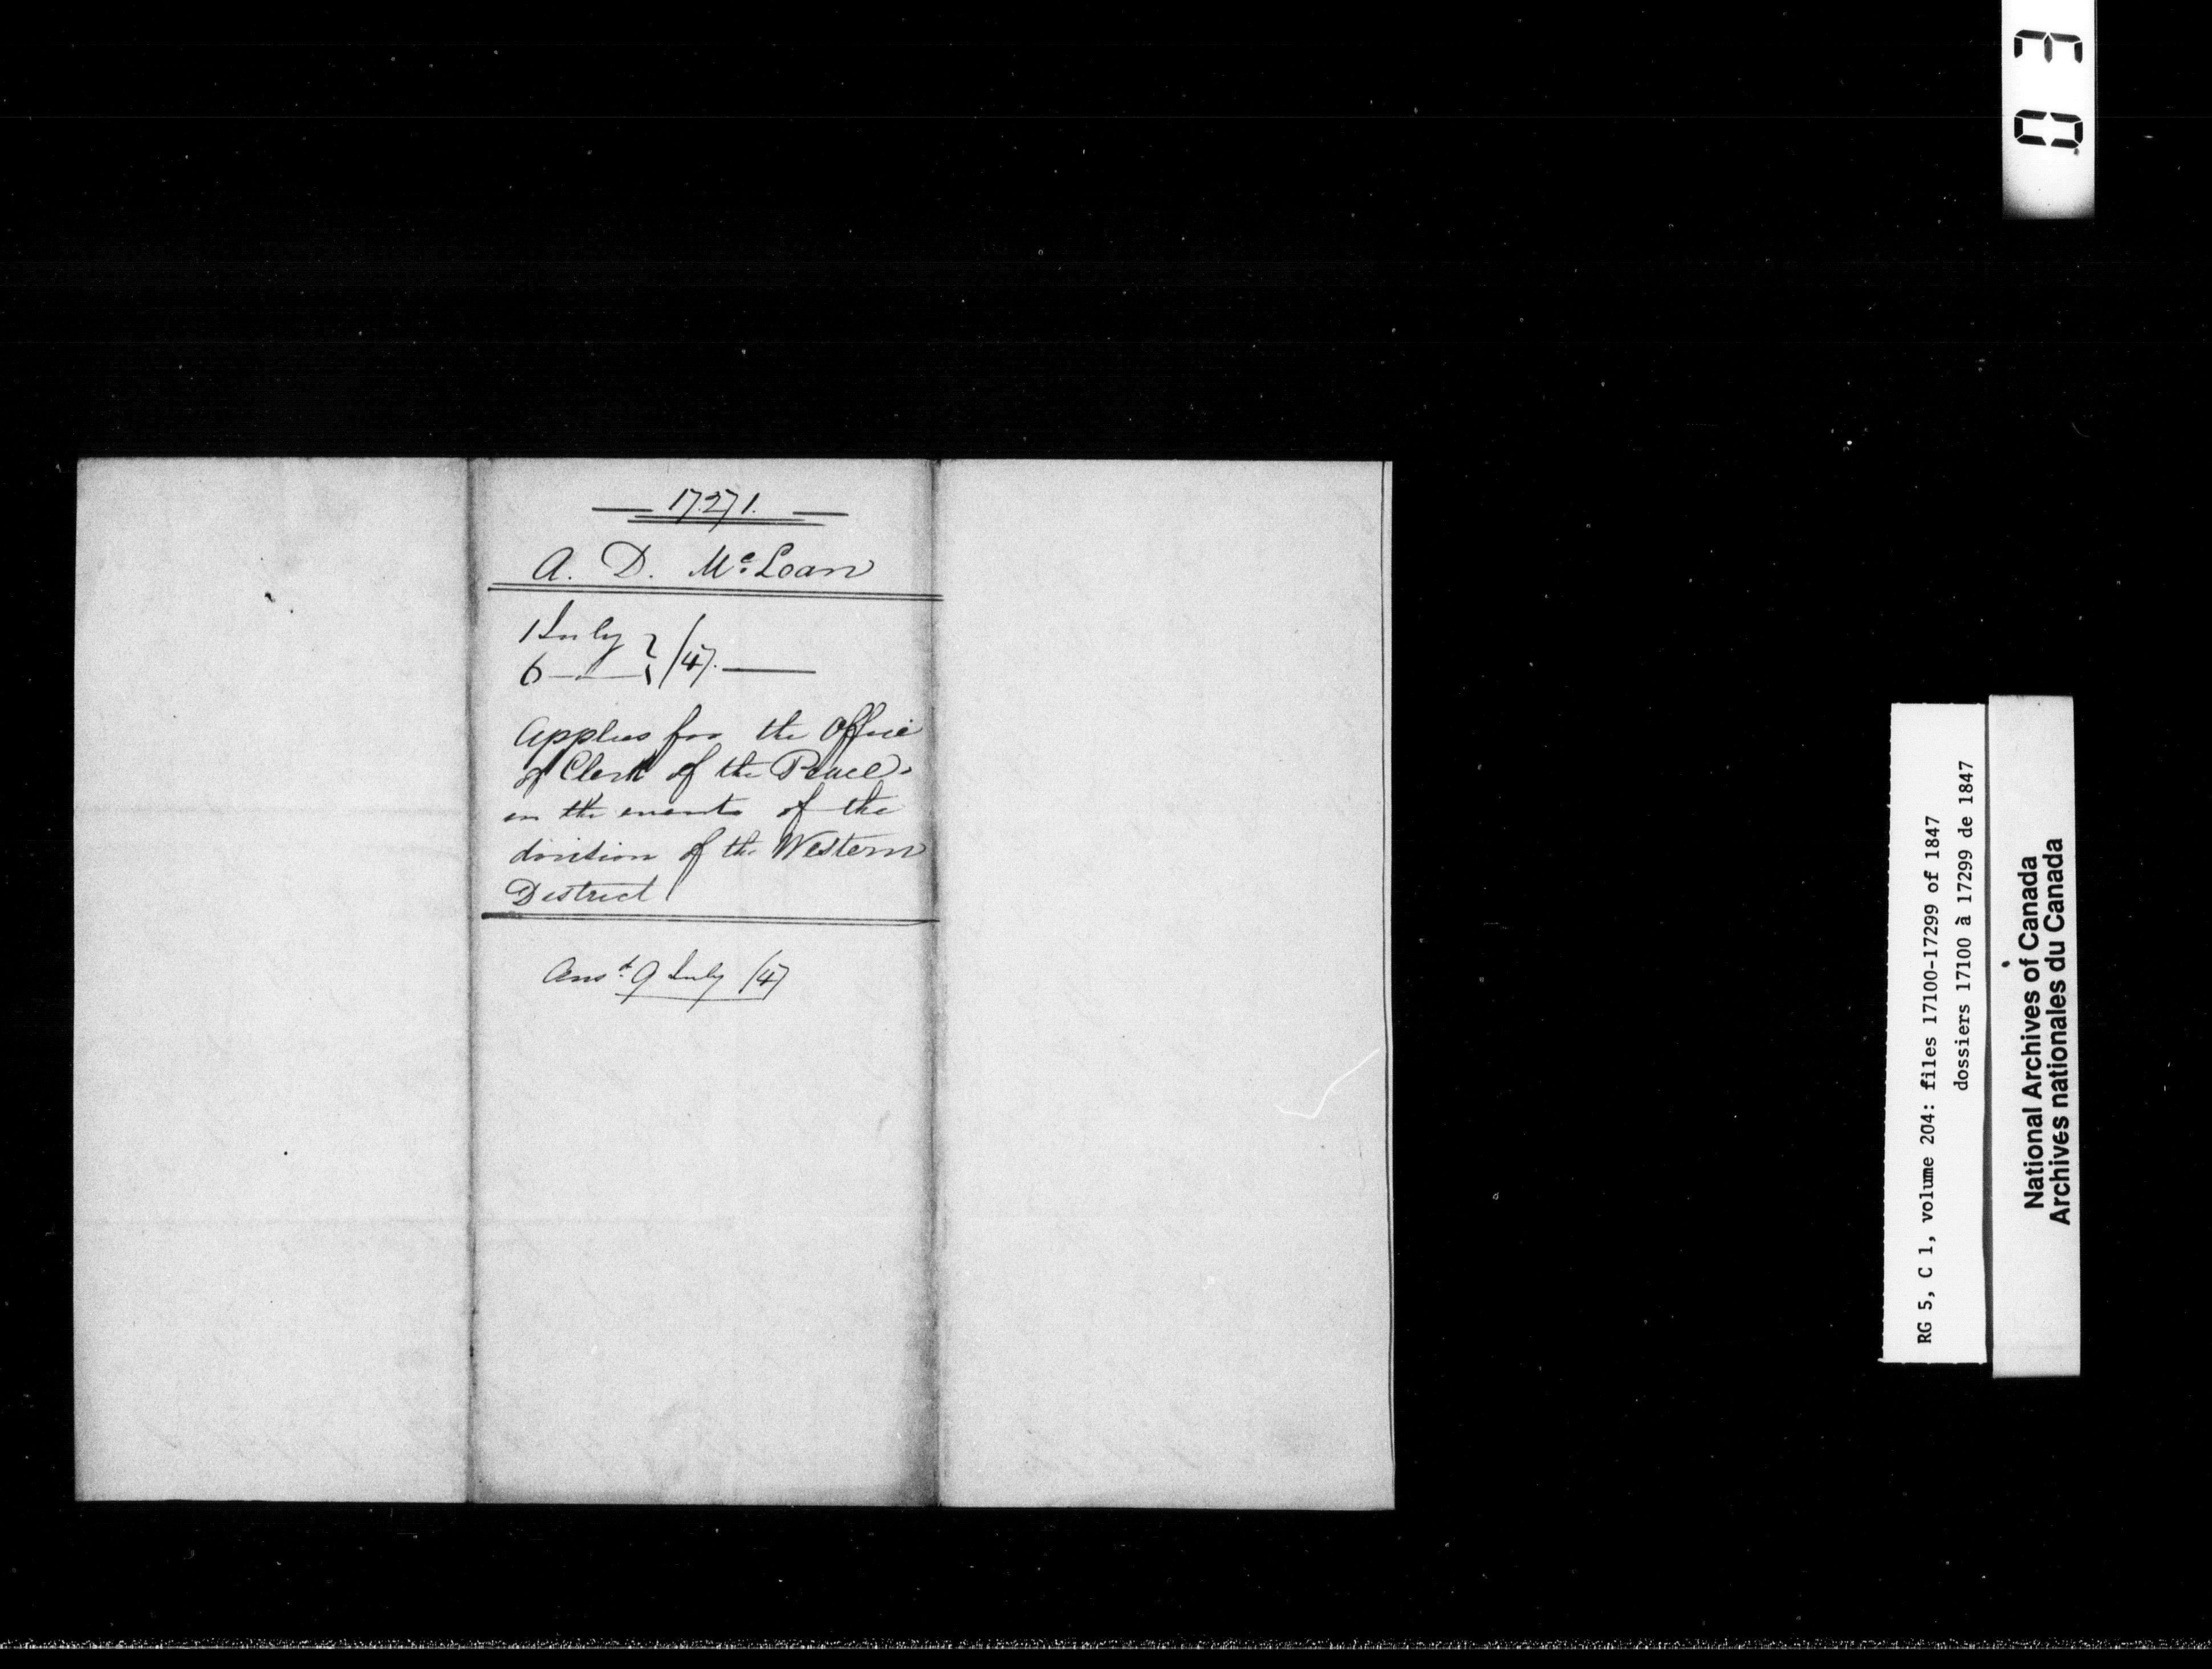 17271.
A. D. Mc. Lean
1 July }
6 — " — } /47. —
Applies for the Office
of Clerk of the Peace
in the event of the
division of the Western
District
Ansd. 9 July /47
RG 5, C 1, volume 204: files 17100-17299 of 1847
dossiers 17100 à 17299 de 1847
National Archives of Canada
Archives nationales du Canada